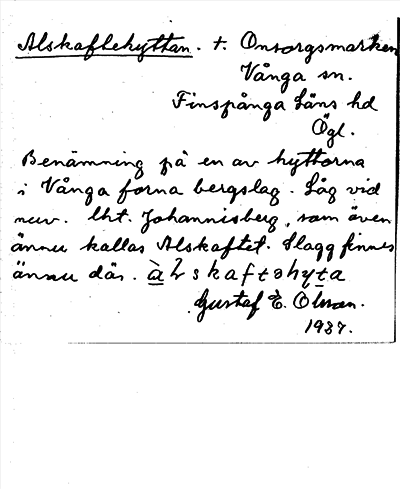 Alskaftehyttan. t. Onsorgsmarken
Vånga sn.
Finspånga läns hd
Ögl.
Benämning på en av hyttorna
i Vånga forna bergslag. Låg vid
nuv. lht. Johannisberg, som även
ännu kallas Alskaftet. Slagg finnes
ännu där.
Gustaf E. Olsson.
1937.